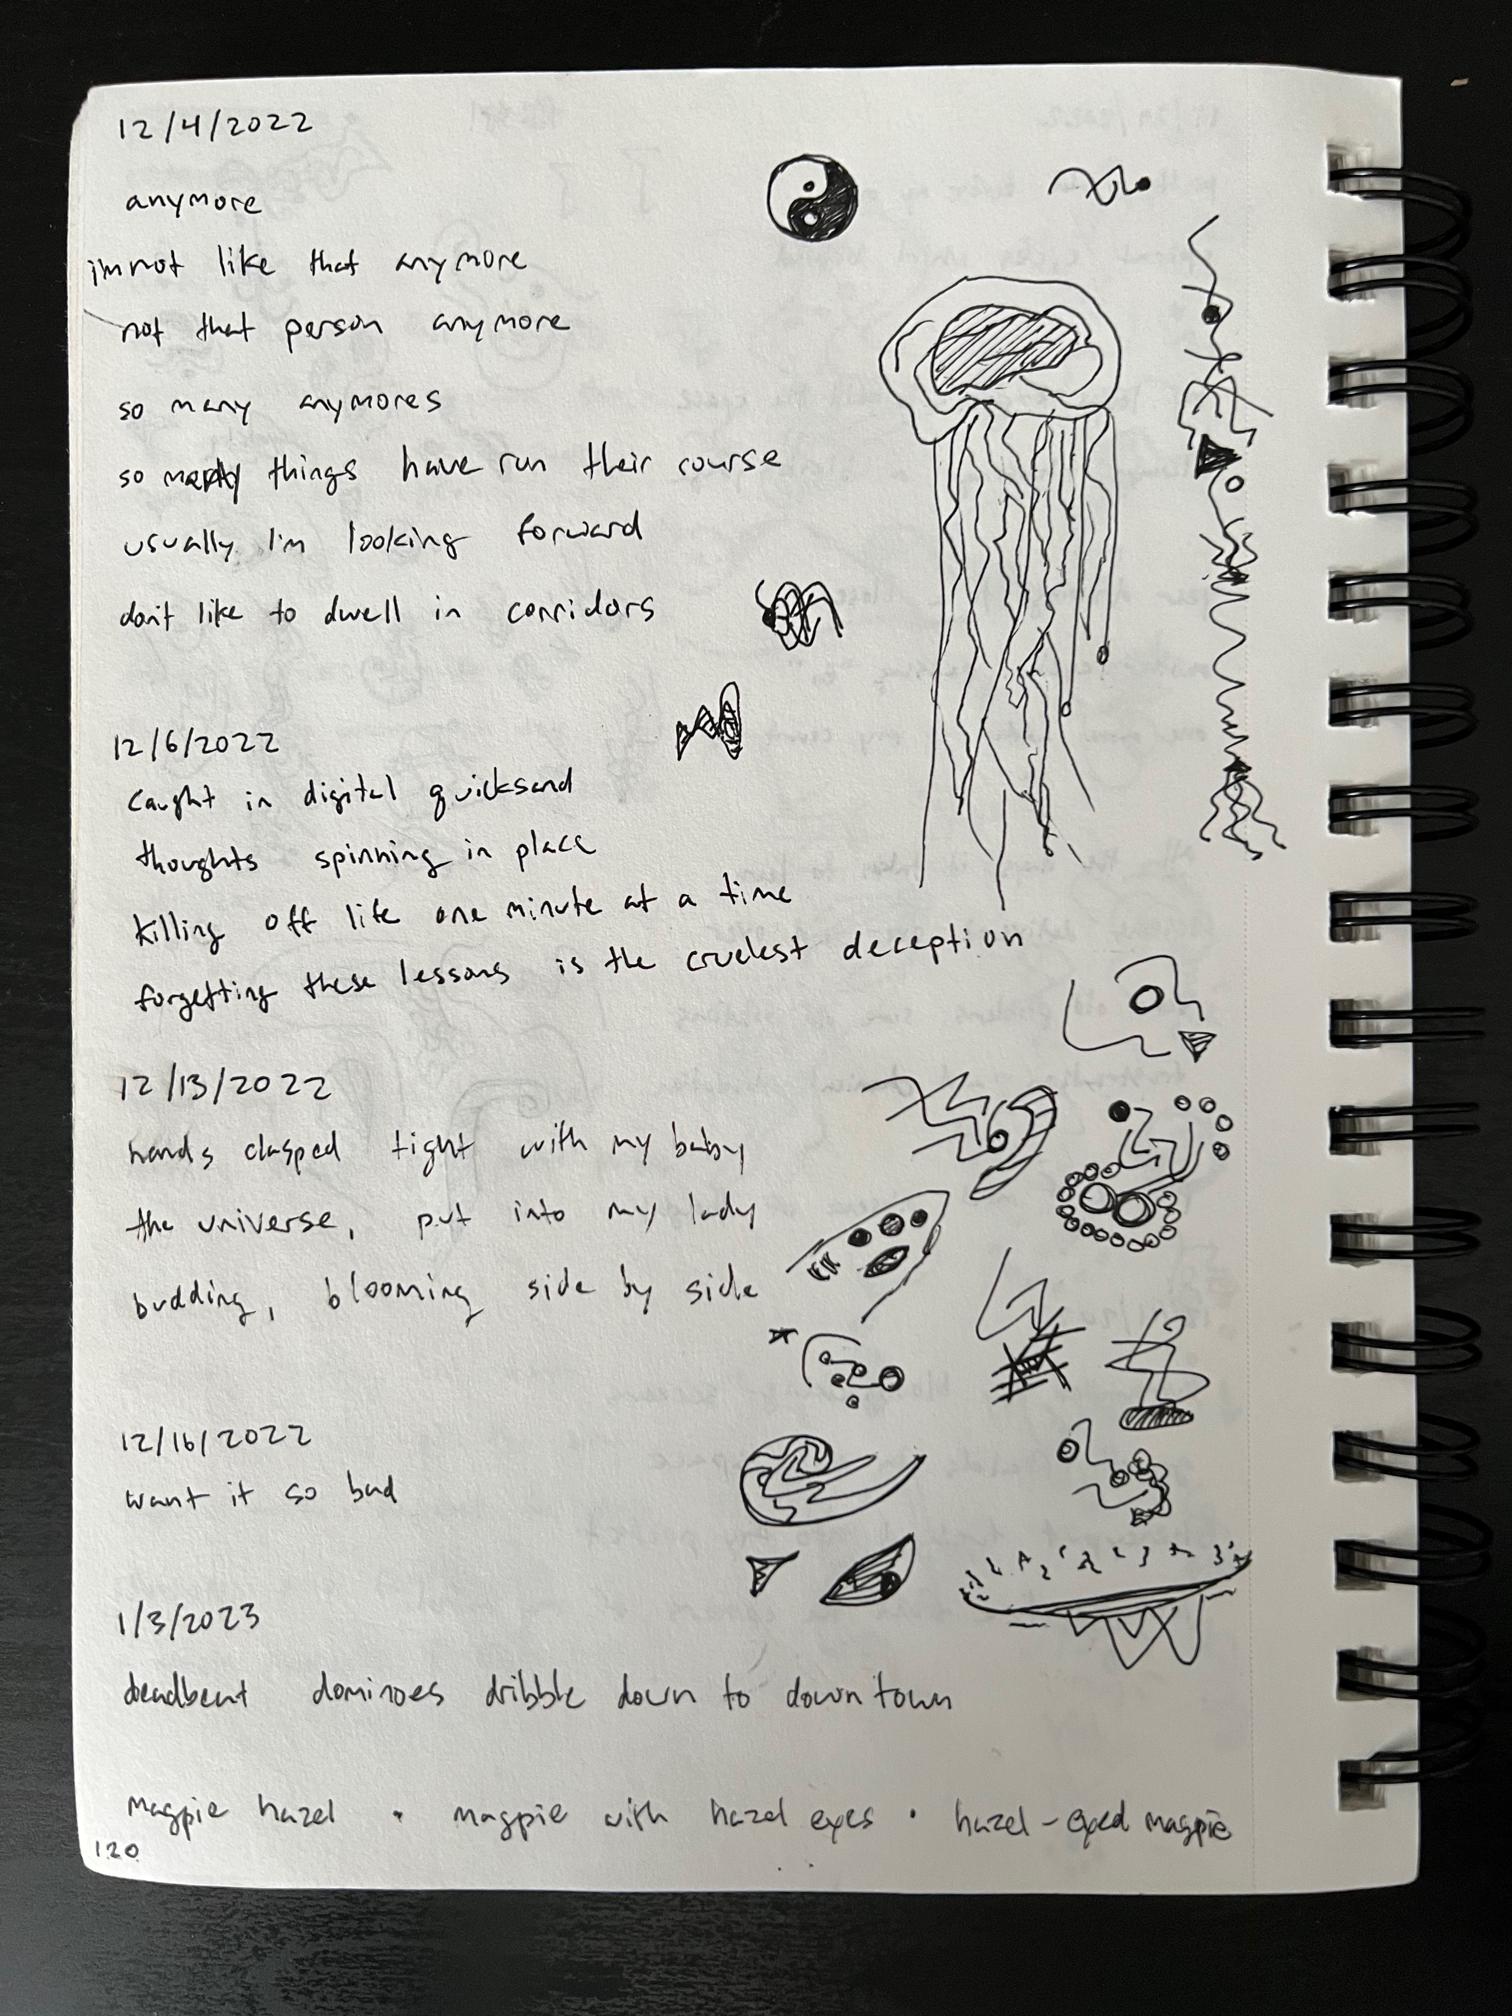 12/4/2022
anymore
i'm not like that anymore
not that person anymore
so many anymores
so many things have run their course
usually i'm looking forward
don't like to dwell in corridors
12/6/2022
caught in digital quicksand
thoughts spinning in place
killing off life one minute at a time
forgetting these lessons is the cruelest deception
12/13/2022
hands clasped tight with my baby
the universe, put into my lady
budding, blooming side by side
12/16/2022
want it so bad
1/3/2023
deadbeat dominoes dribble down to downtown
magpie hazel • magpie with hazel eyes • hazel-eyed magpie
120